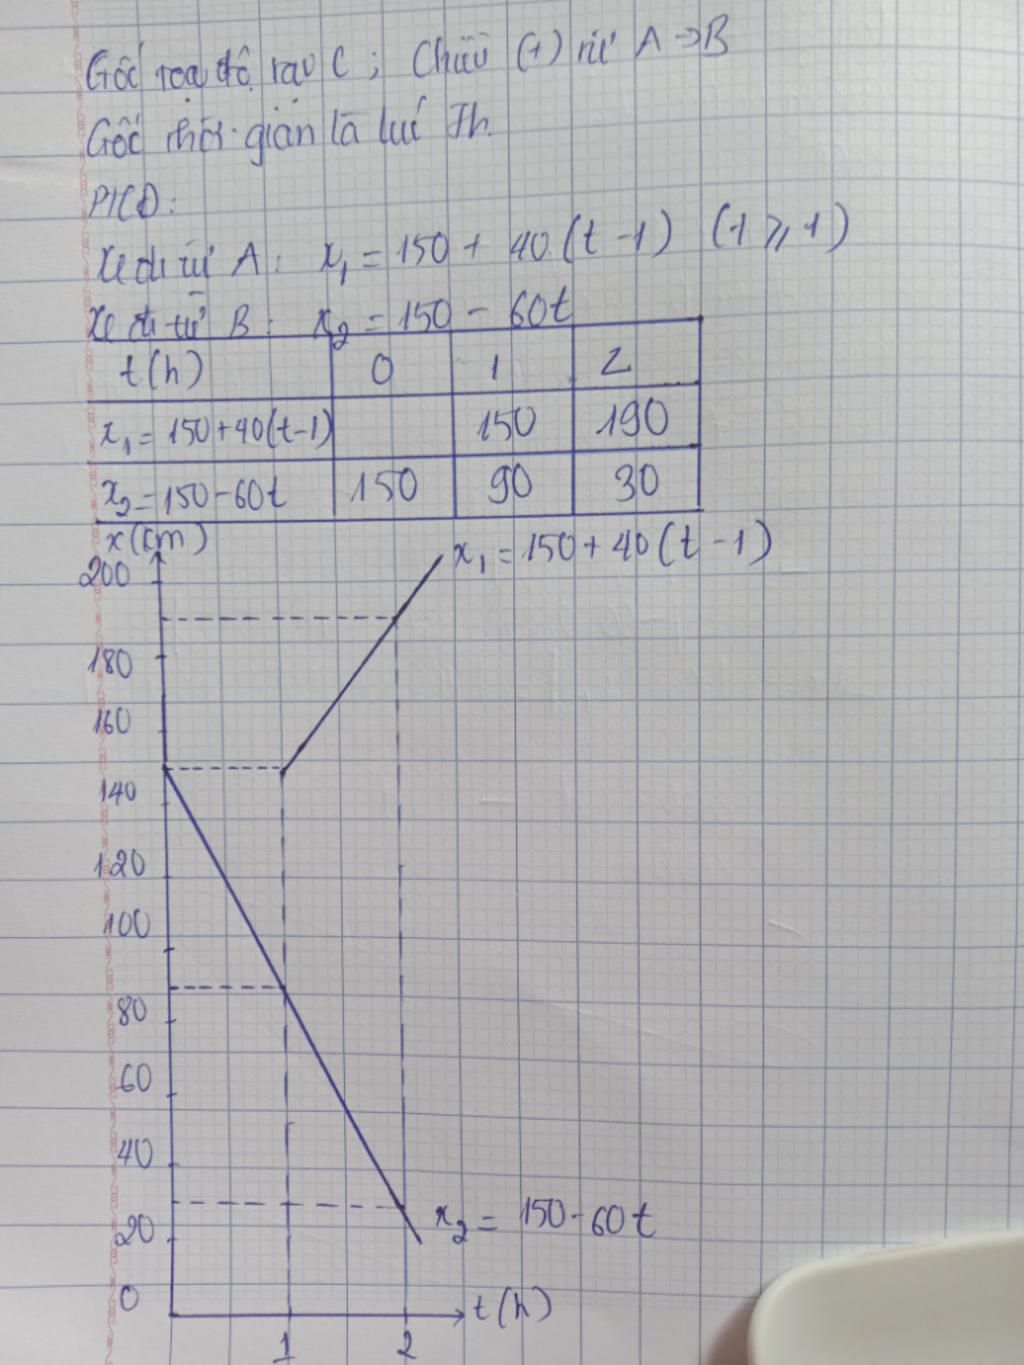 Gốc toạ độ tại C ; Chiều (+) từ A → B
Gốc thời gian là lúc 7h.
PTCĐ:
Xe đi từ A: x₁ = 150 + 40.(t - 1) (t ⩾ 1)
Xe đi từ B: x₂ = 150 - 60t
t(h) 0 1 2
x₁ = 150+40(t-1) 150 190
x₂ = 150-60t 150 90 30
x(km)
x₁ = 150 + 40(t - 1)
200
180
160
140
120
100
80
60
40
20
x₂ = 150-60t
0
t(h)
1 2